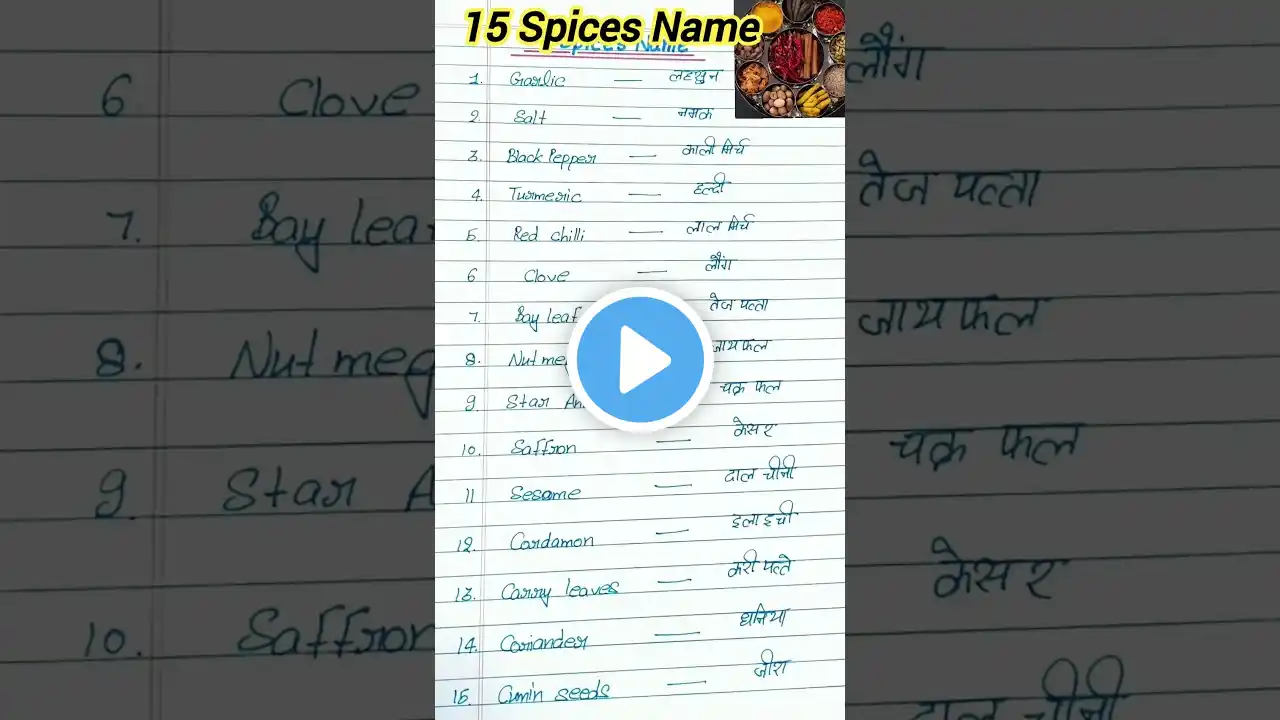 15 Spices Name
Spices Name
1. Garlic — लहसुन
2. Salt — नमक
3. Black Pepper — काली मिर्च
4. Turmeric — हल्दी
5. Red chilli — लाल मिर्च
6 Clove — लौंग
7. Bay leaf तेज पत्ता
8. Nutmeg जायफल
9. Star चक्र फल
10. Saffron — केसर
11 Sesame — दाल चीनी
12. Cardamon — इलाइची
13. Carry leaves — करी पत्ते
14. Coriander — धनिया
15. Cumin seeds — जीरा
6 Clove लौंग
7. Bay तेज पत्ता
8. Nutmeg जायफल
9. Star चक्र फल
10. Saffron केसर
दाल चीनी